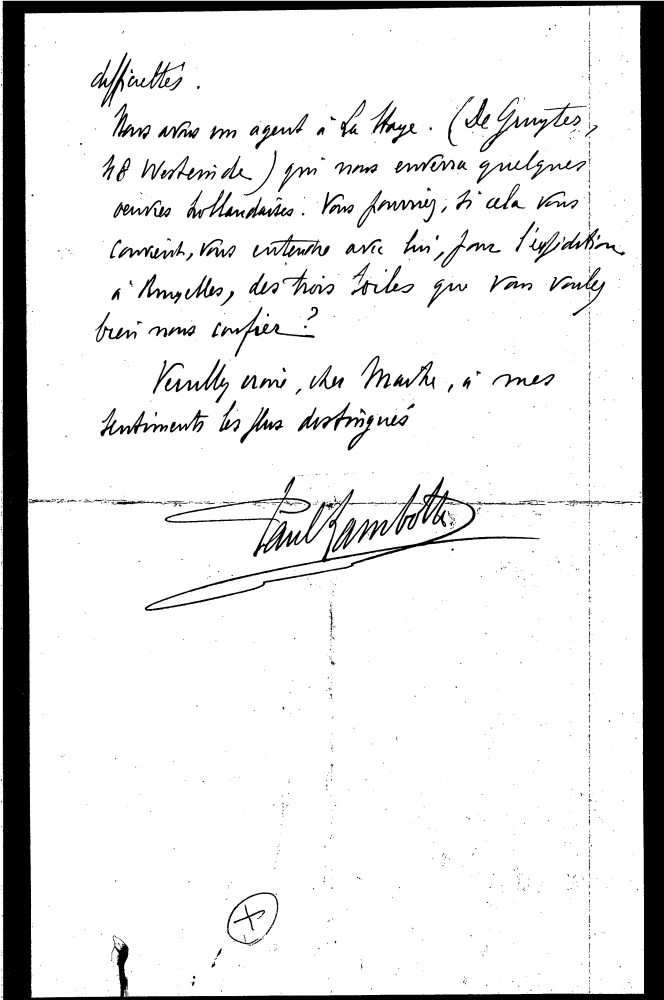 difficultés.
Nous avons un agent à La Haye. (De Gruyter,
48 Westeinde) qui nous enverra quelques
oeuvres hollandaises. Vous pourriez, si cela vous
convient, vous entendre avec lui, pour l'expédition
à Bruxelles, des trois toiles que vous voulez
bien nous confier?
Veuillez croire, cher Maître, à mes
sentiments les plus distingués
Paul Lambotte